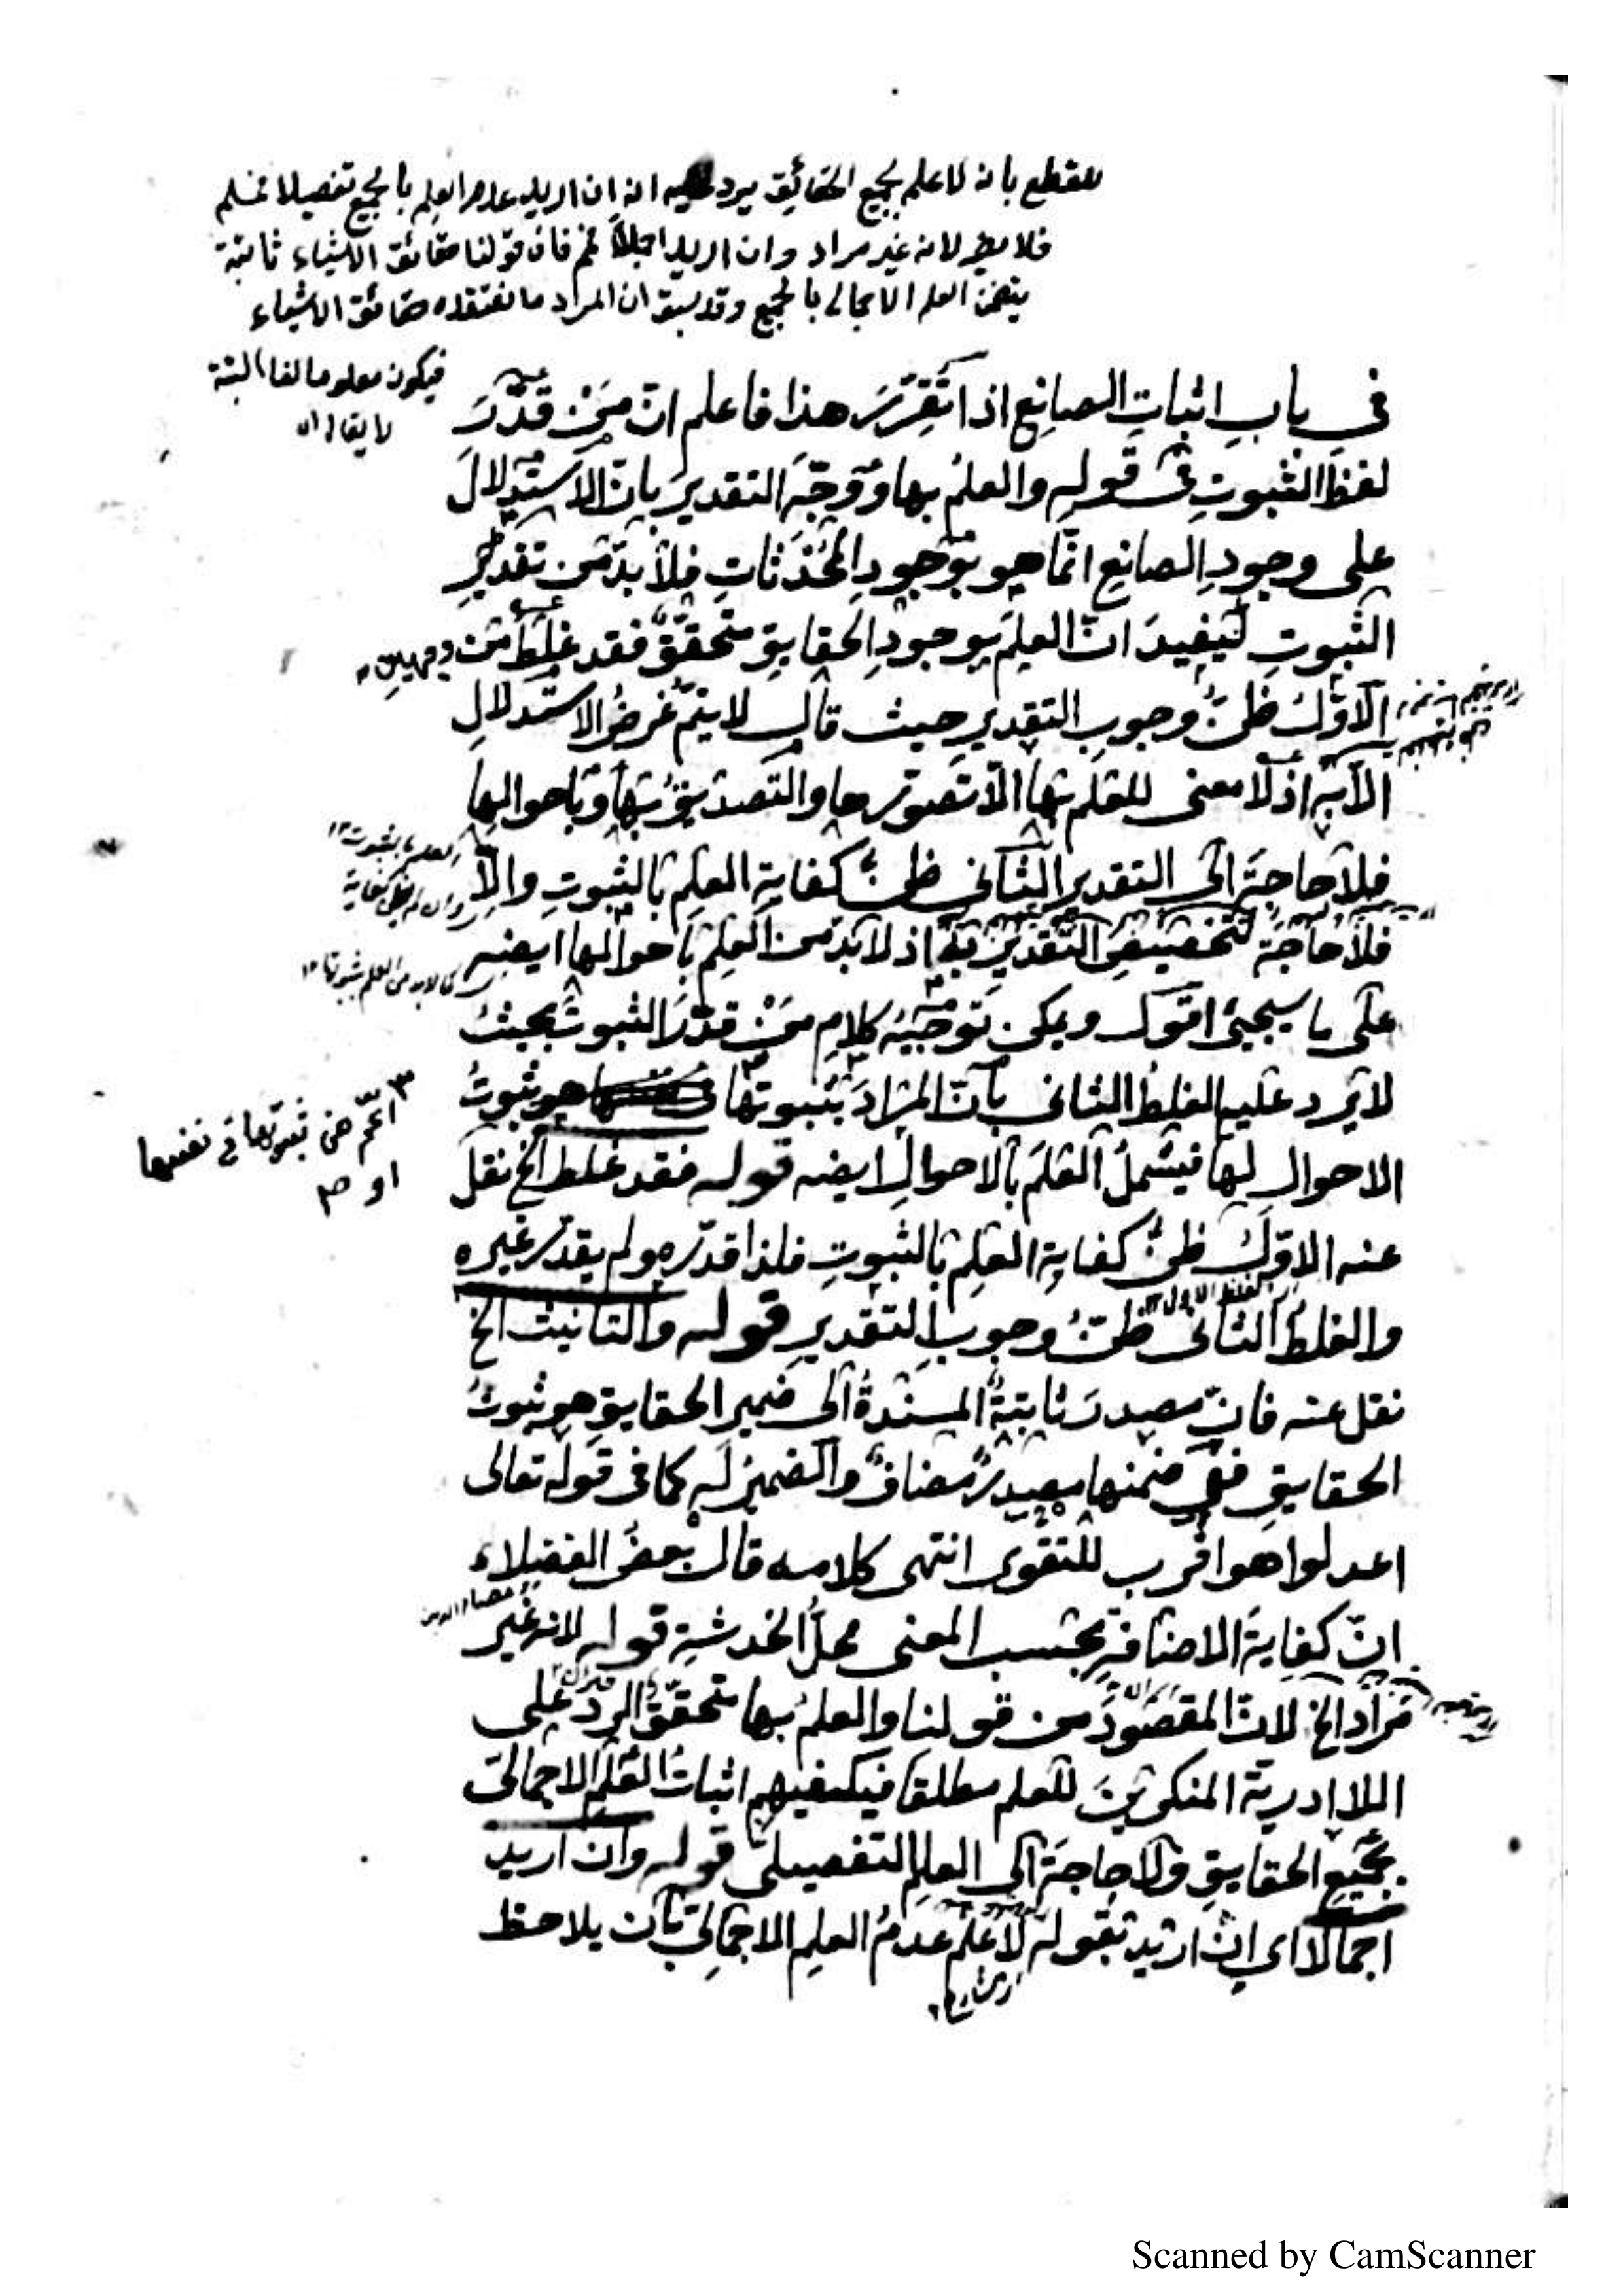 للقطع بانه لا علم بجميع الحقائق يرد عليه انه ان اريد عدم العلم بالجميع تفصيلا فمسلم
فلا يضر لانه غير مراد وان اريد اجمالا فم فان قولنا حقائق الاشياء ثابتة
يتضمن العلم الاجمالي بالجميع وقد سبق ان المراد ما نعتقده حقائق الاشياء
فيكون معلوما لنا البتة
لا يقال ان
في باب اثبات الصانع اذا تقرر هذا فاعلم ان من قدر
لفظ الثبوت في قوله والعلم بها ووجه التقدير بان الاستدلال
على وجود الصانع انما هو بوجود المحدثات فلا بد من تقدير
الثبوت ليفيد ان العلم بوجود الحقايق متحقق فقد غلط من وجهين
الاول ظن وجوب التقدير حيث قال لا يتم غرض الاستدلال
الا به اذ لا معنى للعلم بها الا تصورها والتصديق بها وباحوالها
فلا حاجة الى التقدير الثاني ظن كفاية العلم بالثبوت والا
فلا حاجة لتخصيص التقدير به اذ لا بد من العلم باحوالها ايضه
كما لا بد من العلم بثبوتها
على ما سيجئ اقول ويمكن توجيه كلام من قدر الثبوت بحيث
لا يرد عليه الغلط الثاني بان المراد بثبوتها هو ثبوت
اعم من ثبوتها في نفسها
او
الاحوال لها فيشمل العلم بالاحوال ايضه قوله فقد غلط الخ نقل
عنه الاول ظن كفاية العلم بالثبوت فلذا قدره ولم يقدر غيره
والغلط الثاني ظن وجوب التقدير قوله والتانيث الخ
نقل عنه فان مصدر ثابتة المسندة الى ضمير الحقايق هو ثبوت
الحقايق ففي ضمنها مصدر مضاف والضمير له كما في قوله تعالى
اعدلوا هو اقرب للتقوى انتهى كلامه قال بعض الفضلاء
ان كفاية الاضافة بحسب المعنى محل الخدشة قوله لانه غير
مراد الخ لان المقصود من قولنا والعلم بها متحقق الرد على
اللاادرية المنكرين للعلم مطلقا فيكفيهم اثبات العلم الاجمالي
بجميع الحقايق ولا حاجة الى العلم التفصيلي قوله وان اريد
اجمالا اي ان اريد بقوله لا علم عدم العلم الاجمالي بان يلاحظ
Scanned by CamScanner